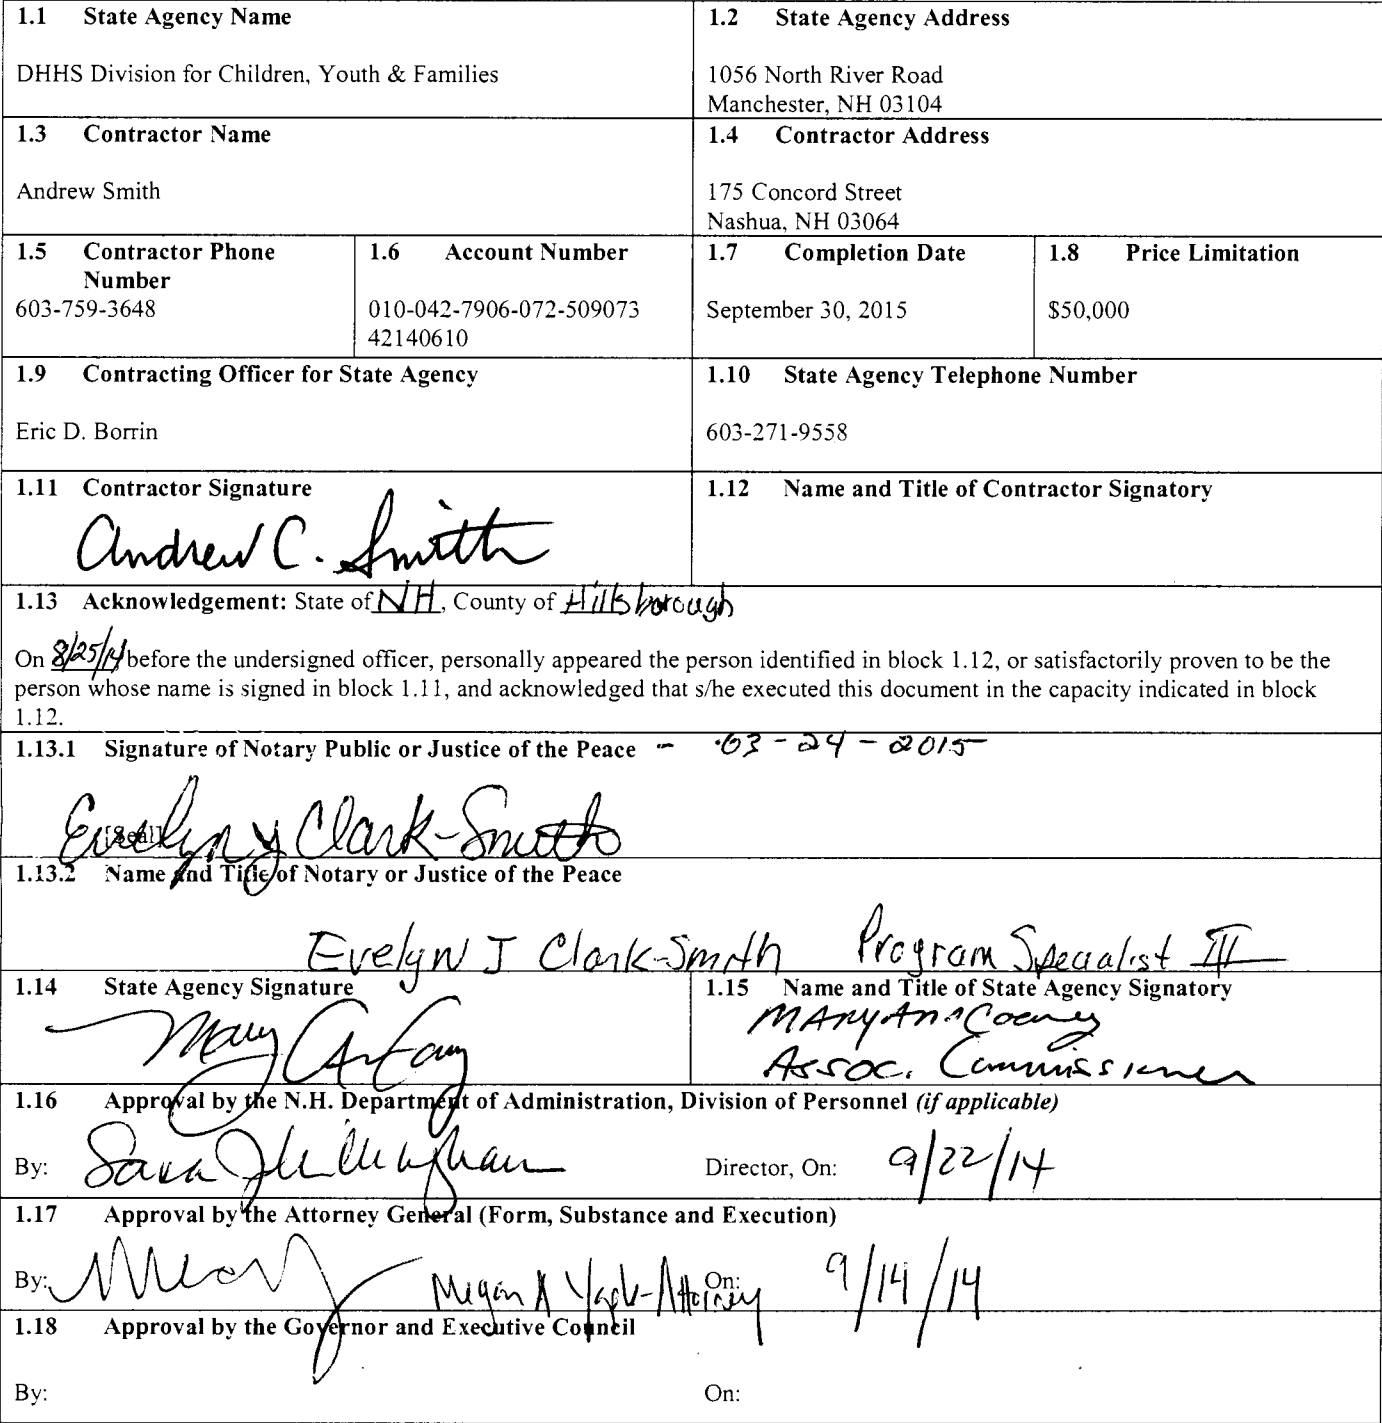 1.1 State Agency Name
DHHS Division for Children, Youth & Families
1.2 State Agency Address
1056 North River Road
Manchester, NH 03104
1.3 Contractor Name
Andrew Smith
1.4 Contractor Address
175 Concord Street
Nashua, NH 03064
1.5 Contractor Phone
Number
603-759-3648
1.6 Account Number
010-042-7906-072-509073
42140610
1.7 Completion Date
September 30, 2015
1.8 Price Limitation
$50,000
1.9 Contracting Officer for State Agency
Eric D. Borrin
1.10 State Agency Telephone Number
603-271-9558
1.11 Contractor Signature
Andrew C. Smith
1.12 Name and Title of Contractor Signatory
1.13 Acknowledgement: State of NH, County of Hillsborough
On 8/25/14 before the undersigned officer, personally appeared the person identified in block 1.12, or satisfactorily proven to be the
person whose name is signed in block 1.11, and acknowledged that s/he executed this document in the capacity indicated in block
1.12.
1.13.1 Signature of Notary Public or Justice of the Peace - 03-24-2015
Evelyn J Clark-Smith
[Seal]
1.13.2 Name and Title of Notary or Justice of the Peace
Evelyn J Clark-Smith Program Specialist III
1.14 State Agency Signature
Mary
1.15 Name and Title of State Agency Signatory
Mary Ann Cooney
Assoc. Commissioner
1.16 Approval by the N.H. Department of Administration, Division of Personnel (if applicable)
By: Sara
Director, On: 9/22/14
1.17 Approval by the Attorney General (Form, Substance and Execution)
By: Megan A Yaple-Attorney On: 9/14/14
1.18 Approval by the Governor and Executive Council
By:
On: